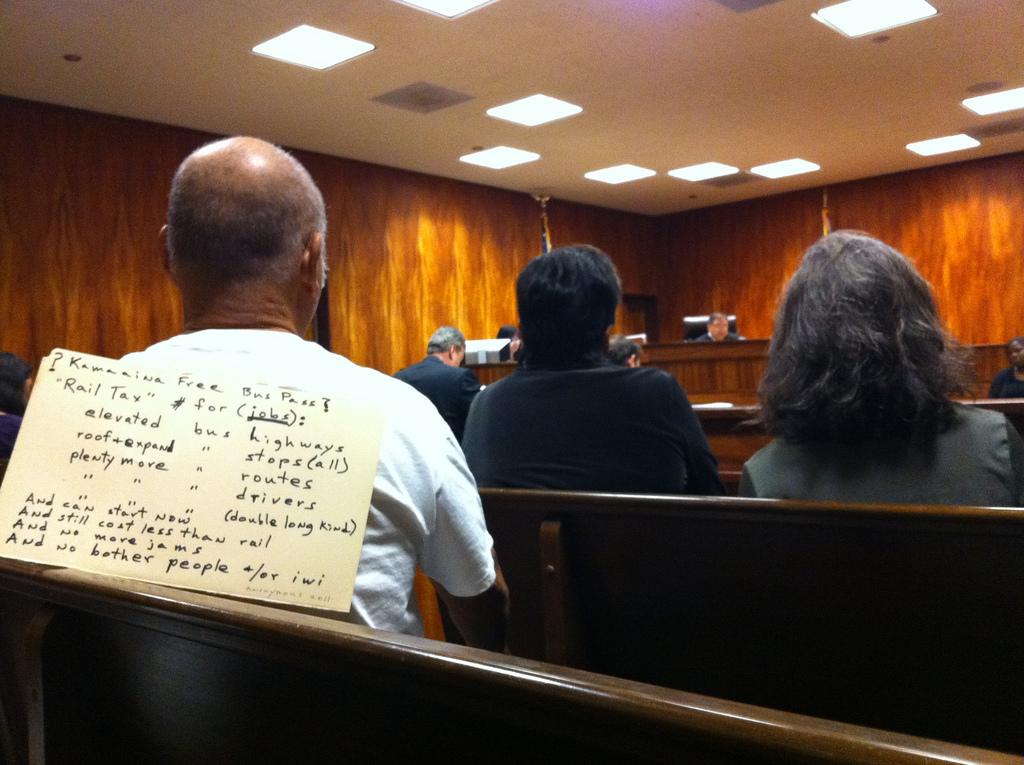 ? Kamaaina Free Bus Pass?
"Rail Tax" # for (jobs):
elevated bus highways
roof+expand " stops(all)
plenty more " routes
" " " drivers
(double long kind)
And can start now
And still cost less than rail
And no more jams
And no bother people +/or iwi
anonymous 2011